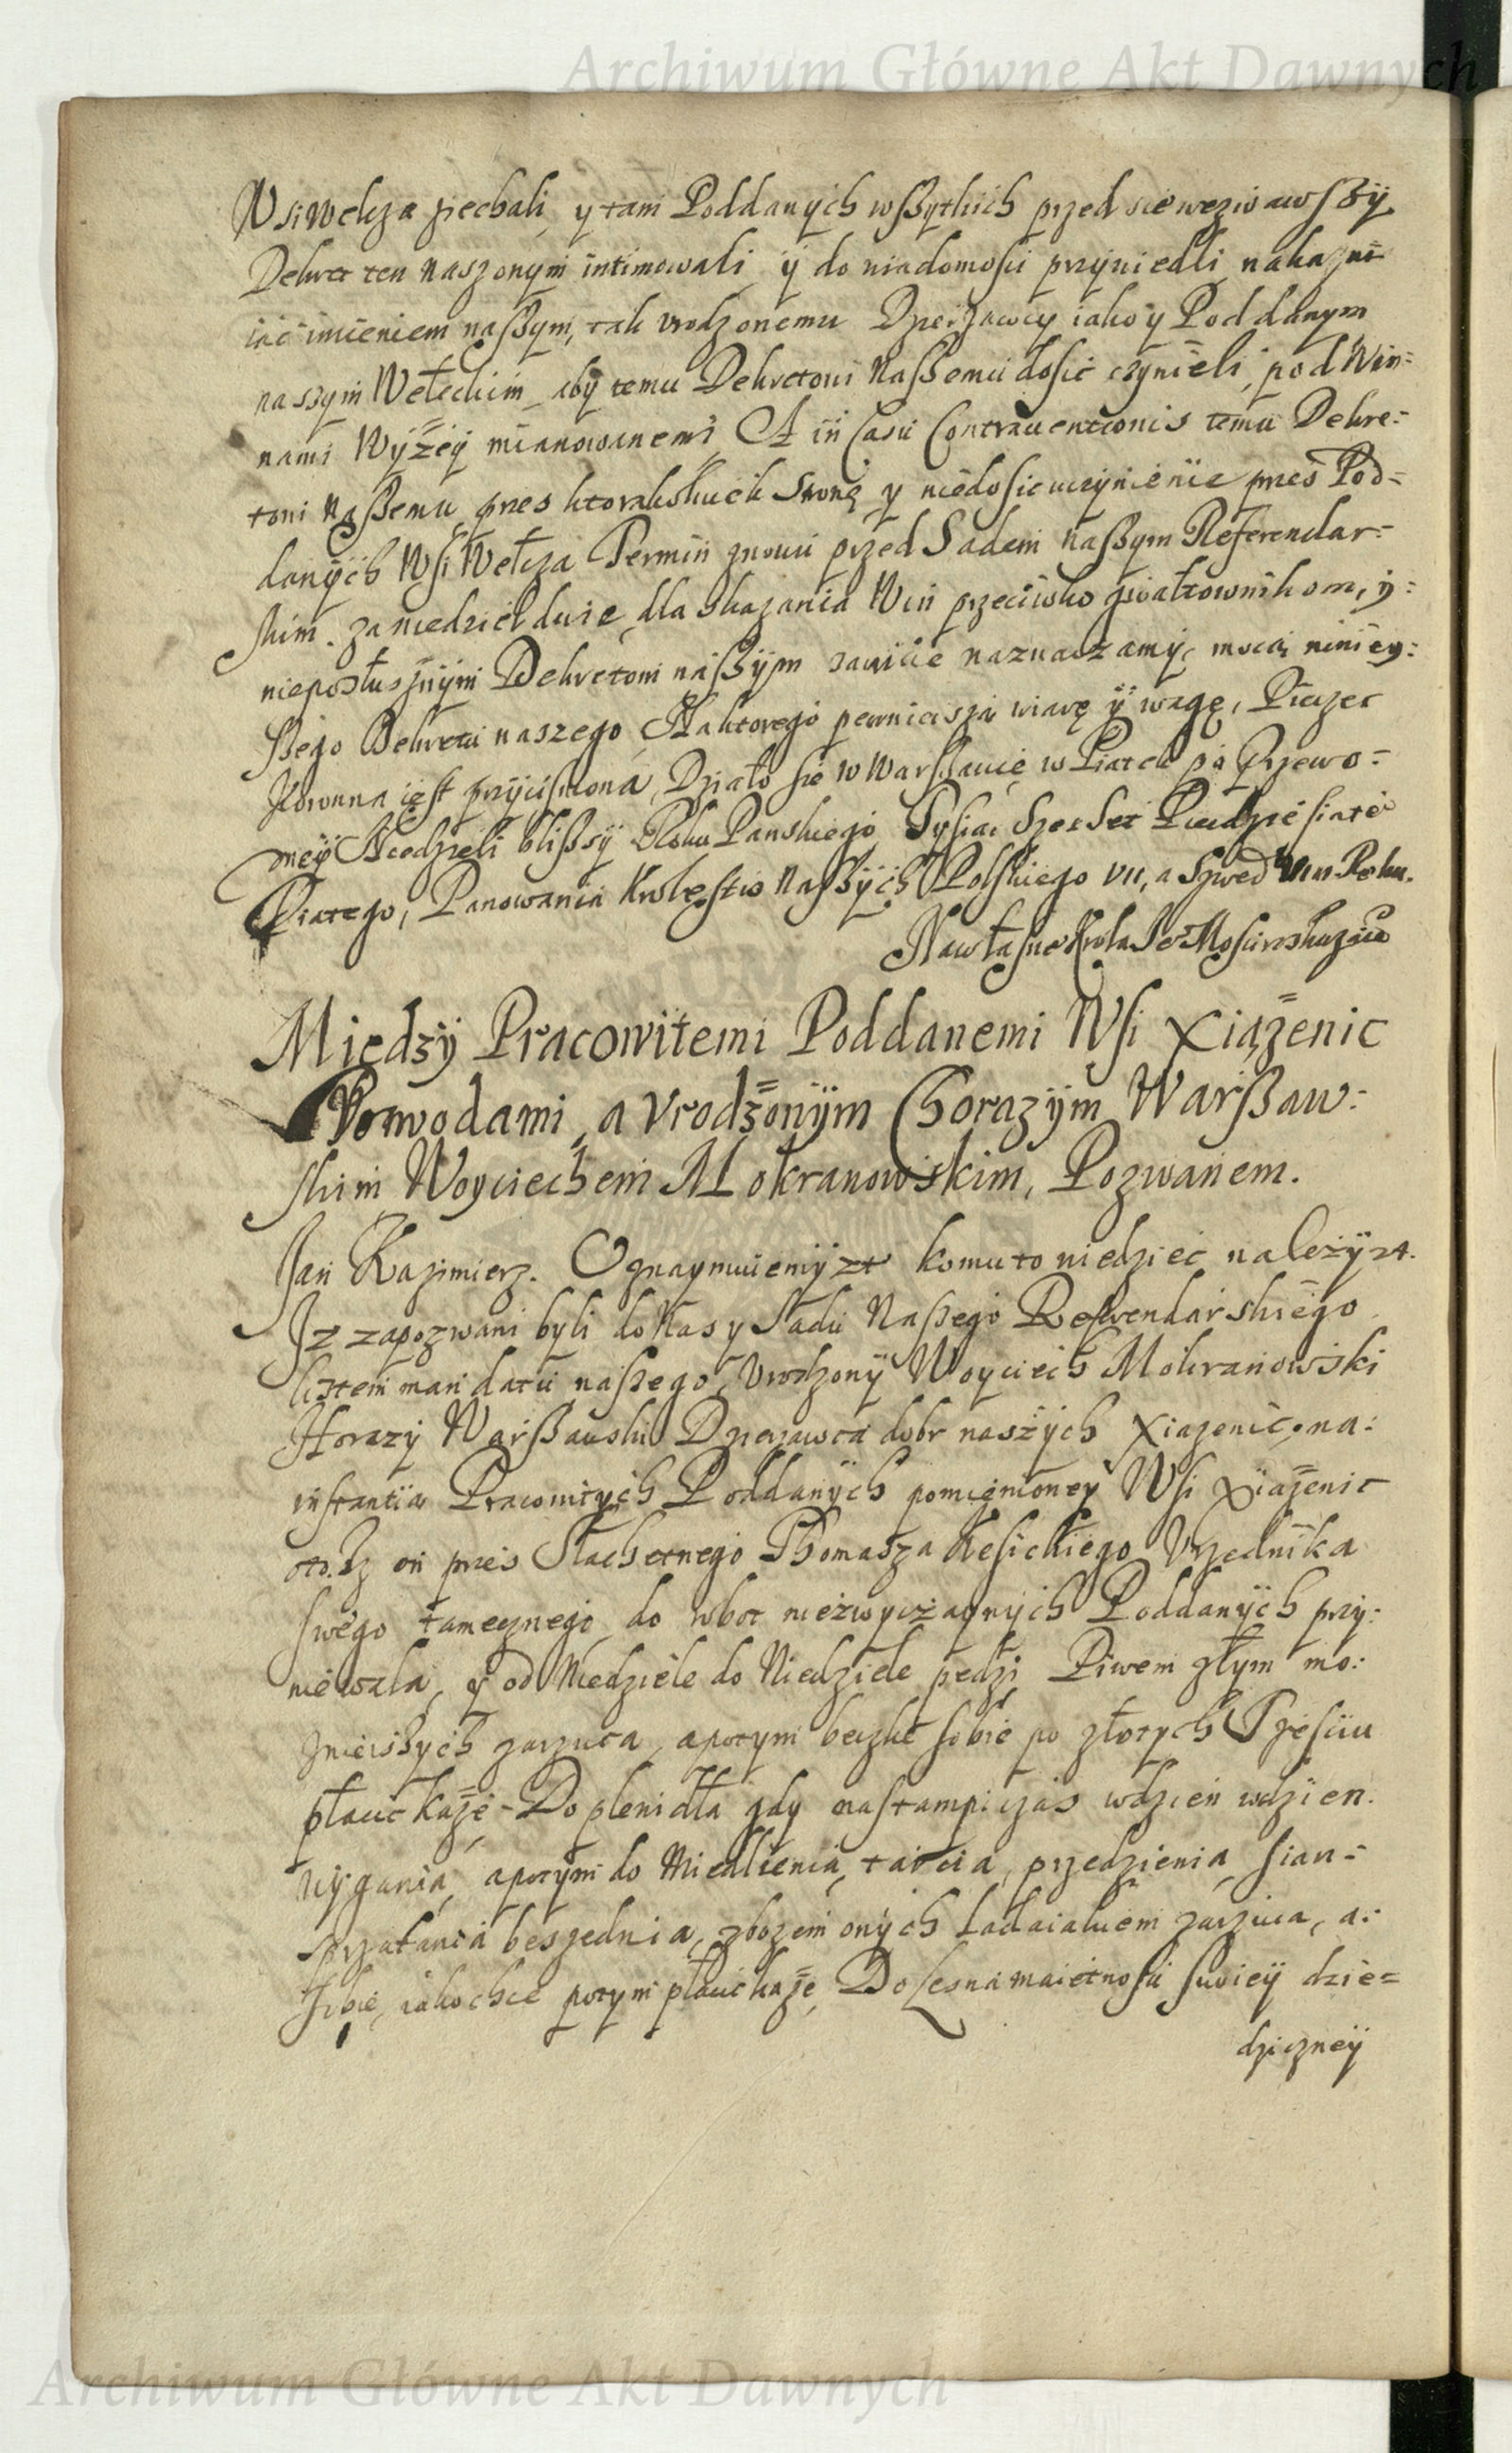 Archiwum Główne Akt Dawnych
Wsi Wełcza ziechali, y tam Poddanych wszytkich przed sie wezwawszy
Dekret ten naszonym intimowali y do wiadomosci przyniedli nakazui
iąc imieniem naszym, tak vrodzonemu Dzierzawcy iako y Poddanym
naszym Wełeckim, aby temu Dekretowi Naszemu dosic czynieli, pod Win=
nami Wyżey mianowanemi, A in Casu Contrauentionis temu Dekre=
towi Naszemu, przes ktorakolwiek Stronę y niedosicuczynienie przes Pod=
danych Wsi Wełcza Termin znowu przed Sadem naszym Referendar=
skim. za niedziel dwie, dla skazania Win przeciwko gwałtownikom, y=
nieposłusznym Dekretom naszym zawicie naznaczamy, mocą niniey=
szego Dekretu naszego, Na ktorego pewnieiszą wiarę y wagę, Pieczęc
Koronna iest przycisniona, Działo sie w Warszawie w Piatek po Przewo=
dney Niedzieli bliszy Roku Panskiego Tysiac Szescset Piędziesiate
Piatego, Panowania Krolestw Naszych Polskiego VII, a Szwedgo VIII Roku.
Na własne Krola Je Mosci roskazanie
Między Pracowitemi Poddanemi Wsi Xiążenic
Powodami, a Vrodzonym Chorazym Warszaw=
skim Woyciechem Mokranowskim, Pozwanem.
Jan Kazimierz. Oznaymuiemy zt komu to wiedziec należy zt.
Iz zapozwani byli do Nas y Sadu Naszego Referendarskiego
listem mandatu naszego, Vrodzony Woyciech Mokranowski
Horazy Warszawski Dzierzawca dobr naszych Xiazenic, na=
instantia Pracowitych Poddanych pomienioney Wsi Xiażenic
oto. Iz on przes Slachetnego Thomasza Kesickiego Vrzednika
swego tamecznego do robot niezwyczaynych Poddanych przy=
niewala, y od Niedziele do Niedziele pedzi, Piwem złym mo=
znieiszych zarzuca, a potym beczke sobie po złotych Szesciu
płacic każe, Do plenidła gdy nastampi czas wdzien wdzien
wygania, a potym do Miedlienia, tarcia, przedzienia, sian=
sprzatania beszednia, zbozem onych ladaiakiem zarzuca, a=
sobie, iako chce potym płacic każe, Do lesna maietnosci swoiey dzie=
dziczney
Archiwum Główne Akt Dawnych